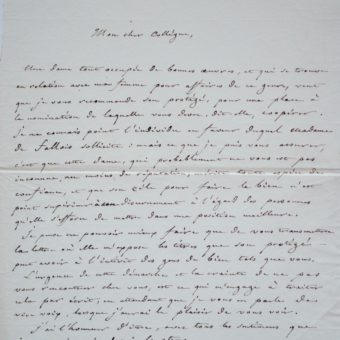 Mon cher Collègue,
Une dame tout occupée de bonnes œuvres, et qui se trouve
en relation avec ma femme pour affaires de ce genre, veut
que je vous recommande son protégé, pour une place à
la nomination de laquelle vous devez, dit-elle, coopérer.
Je ne connais point l'individu en faveur duquel madame
de Falloix sollicite : mais ce que je puis vous assurer,
c'est que cette dame, qui probablement ne vous est pas
inconnue, au moins de réputation, mérite toute espèce de
confiance, et que son zèle pour faire le bien n'est
point supérieur à son discernement à l'égard des personnes
qu'elle s'efforce de mettre dans une position meilleure.
Je pense ne pouvoir mieux faire que de vous transmettre
la lettre où elle m'expose les titres que son protégé
peut avoir à l'intérêt des gens de bien tels que vous.
L'urgence de cette démarche et la crainte de ne pas
vous rencontrer chez vous, est ce qui m'engage à traiter
cela par écrit, en attendant que je vous en parle de
vive voix, lorsque j'aurai le plaisir de vous voir.
J'ai l'honneur d'être, avec tous les sentimens que